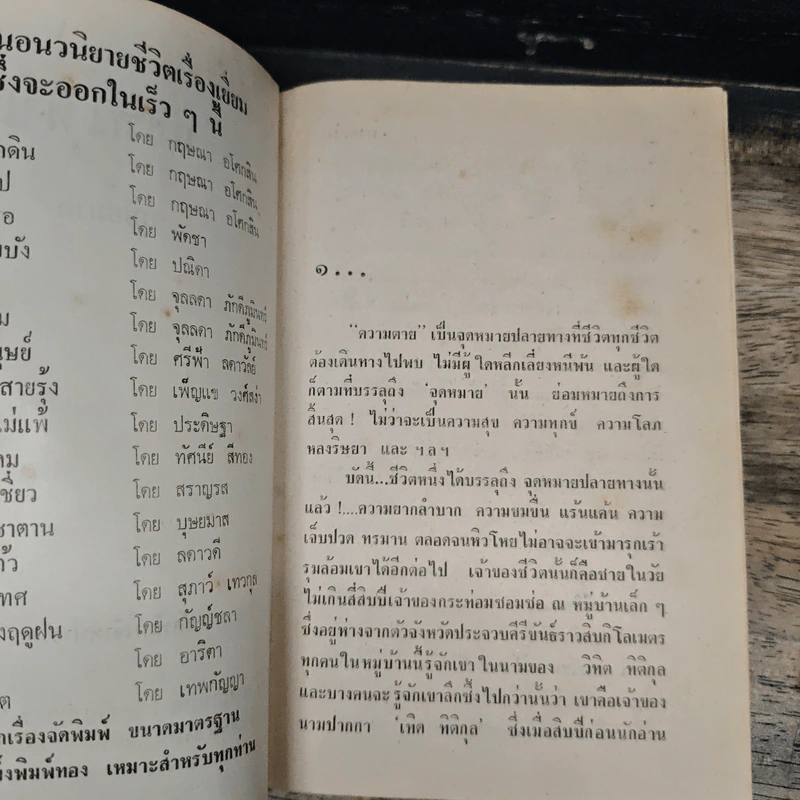 นอนวนิยายชีวิตเรื่องเยี่ยม
ซึ่งจะออกในเร็ว ๆ นี้
โดย กฤษณา อโศกสิน
โดย กฤษณา อโศกสิน
โดย กฤษณา อโศกสิน
โดย พัดชา
โดย ปณิดา
โดย จุลลดา ภักดีภูมินทร์
โดย จุลลดา ภักดีภูมินทร์
โดย ศรีฟ้า ลดาวัลย์
สายรุ้ง โดย เพ็ญแข วงศ์สง่า
ไม่แพ้ โดย ประดิษฐา
โดย ทัศนีย์ สีทอง
โดย สราญรส
ซาตาน โดย บุษยมาส
โดย ลดาวดี
โดย สุภาว์ เทวกุล
ฤดูฝน โดย กัญญ์ชลา
โดย อาริตา
โดย เทพกัญญา
กเรื่องจัดพิมพ์ ขนาดมาตรฐาน
พิมพ์ทอง เหมาะสำหรับทุกท่าน
๑...
“ความตาย” เป็นจุดหมายปลายทางที่ชีวิตทุกชีวิต
ต้องเดินทางไปพบ ไม่มีผู้ใดหลีกเลี่ยงหนีพ้น และผู้ใด
ก็ตามที่บรรลุถึง ‘จุดหมาย’ นั้น ย่อมหมายถึงการ
สิ้นสุด ! ไม่ว่าจะเป็นความสุข ความทุกข์ ความโลภ
หลงริษยา และ ฯลฯ
บัดนี้...ชีวิตหนึ่งได้บรรลุถึง จุดหมายปลายทางนั้น
แล้ว !....ความยากลำบาก ความขมขื่น แร้นแค้น ความ
เจ็บปวด ทรมาน ตลอดจนหิวโหยไม่อาจจะเข้ามารุกเร้า
รุมล้อมเขาได้อีกต่อไป เจ้าของชีวิตนั้นก็คือชายในวัย
ไม่เกินสี่สิบปีเจ้าของกระท่อมซอมซ่อ ณ หมู่บ้านเล็ก ๆ
ซึ่งอยู่ห่างจากตัวจังหวัดประจวบคีรีขันธ์ราวสิบกิโลเมตร
ทุกคนในหมู่บ้านนี้รู้จักเขาในนามของ วิทิต ทิติกุล
และบางคนจะรู้จักเขาลึกซึ้งไปกว่านั้นว่า เขาคือเจ้าของ
นามปากกา ‘เทิด ทิติกุล’ ซึ่งเมื่อสิบปีก่อนนักอ่าน